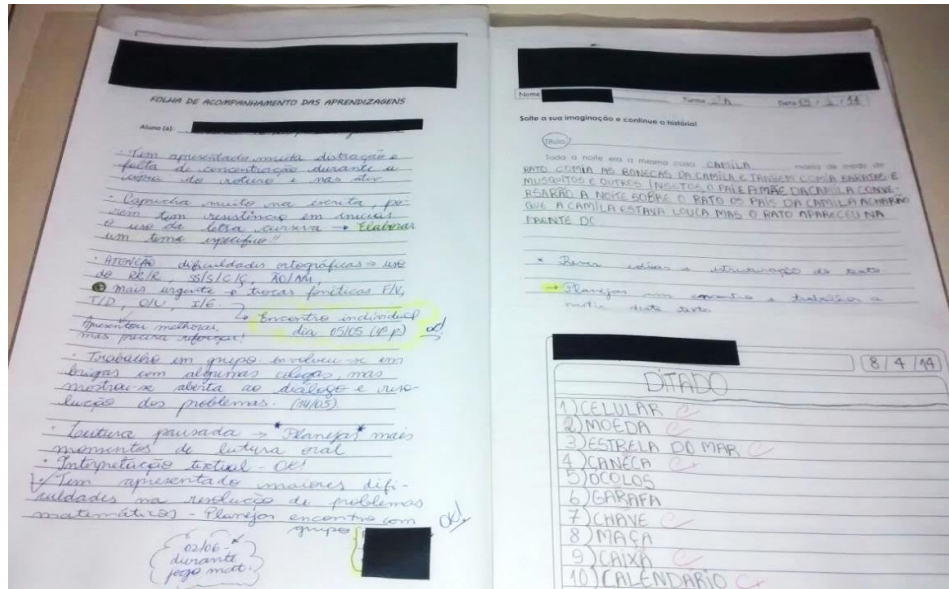 FOLHA DE ACOMPANHAMENTO DAS APRENDIZAGENS
Aluno (a):
- Tem apresentado muita distração e
falta de concentração durante a
cópia do roteiro e nas ativ.
- Capricha muito na escrita, po-
rém tem resistência em iniciar
o uso da letra cursiva → Elaborar
um tema específico!!
- ATENÇÃO dificuldades ortográficas → uso
do RR/R SS/S/C/Ç, ÃO/AM,
mais urgente → trocas fonéticas F/V,
T/D, O/U, I/E.
↳ Encontro individual
dia 05/05 (4º p) ok!
Apresentou melhoras,
mas precisa reforçar!
- Trabalho em grupo: envolveu-se em
brigas com algumas colegas, mas
mostrou-se aberta ao diálogo e reso-
lução dos problemas. (14/05)
- Leitura pausada → *Planejar* mais
momentos de leitura oral
- Interpretação textual - OK!
Tem apresentado maiores difi-
culdades na resolução de problemas
matemáticos - Planejar encontro com
grupo ok!
02/06 -
durante
jogo mat.
Nome
Turma Data / /14
Solte a sua imaginação e continue a história!
Título
Toda a noite era a mesma coisa. CAMILA morria de medo de
RATO COMIA AS BONECAS DA CAMILA E TANBEM COMIA BARATAS E
MUSQUITOS E OUTROS INSETOS O PAI E A MÃE DA CAMILA CONVE-
RSARÃO A NOITE SOBRE O RATO OS PAIS DA CAMILA ACHARÃO
QUE A CAMILA ESTAVA LOUCA MAS O RATO APARECEU NA
FRENTE DE
* Rever ideias e estruturação do texto
→ Planejar um encontro e trabalhar a
deste texto
8/4/14
DITADO
1) CELULAR
2) MOEDA
3) ESTRELA DO MAR
4) CANECA
5) OCOLOS
6) GARAFA
7) CHAVE
8) MAÇA
9) CAIXA
10) CALENDARIO